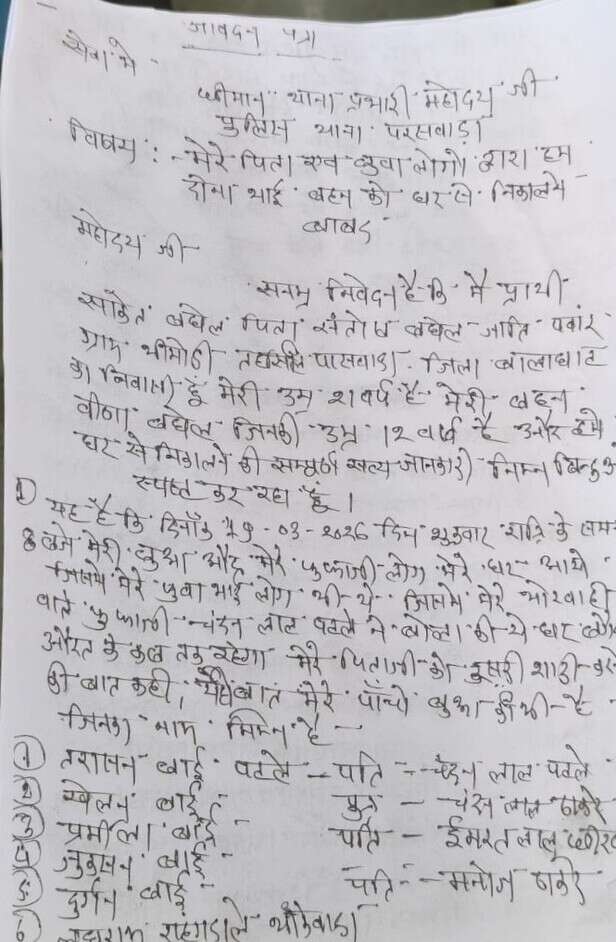 आवेदन पत्र
सेवा मे -
श्रीमान थाना प्रभारी महोदय जी
पुलिस थाना परसवाड़ा
विषय : - मेरे पिता एवं बुवा लोगो द्वारा हम
दोनो भाई बहन को घर से निकालने
बाबद
महोदय जी -
सनम्र निवेदन है कि मै प्रार्थी
साकेत बघेल पिता संतोष बघेल जाति पवांर
ग्राम तहसील परसवाड़ा जिला बालाघाट
का निवासी हूँ मेरी उम्र 21 वर्ष है मेरी बहन
वीणा बघेल जिनकी उम्र 12 वर्ष है और हमे
घर से निकालने की सम्पूर्ण सत्य जानकारी निम्न
स्पष्ट कर रहा हूँ ।
1) यह है कि दिनाँक 03 - 2026 दिन शुक्रवार रात्रि के
8 बजे मेरी बुआ और मेरे फुफाजी लोग मेरे घर आये
जिसमे मेरे फुवा भाई लोग भी थे जिसमे मेरे
वाले फुफाजी चंदन लाल पटले ने बोला की ये घर
औरत के कब तक रहेगा मेरे पिताजी को दूसरी शादी
की बात कही, यह बात मेरे पाँचो बुआ की भी है
जिनका नाम निम्न है -
1) बाई पटले - पति - चंदन लाल पटले
2) खेलन बाई - पुत्र - लाल ठाकरे
3) प्रमीला बाई - पति - ईमरत लाल
4) बाई -
5) दुर्गन बाई - पति - मनोज ठाकरे
6) राहंगडाले